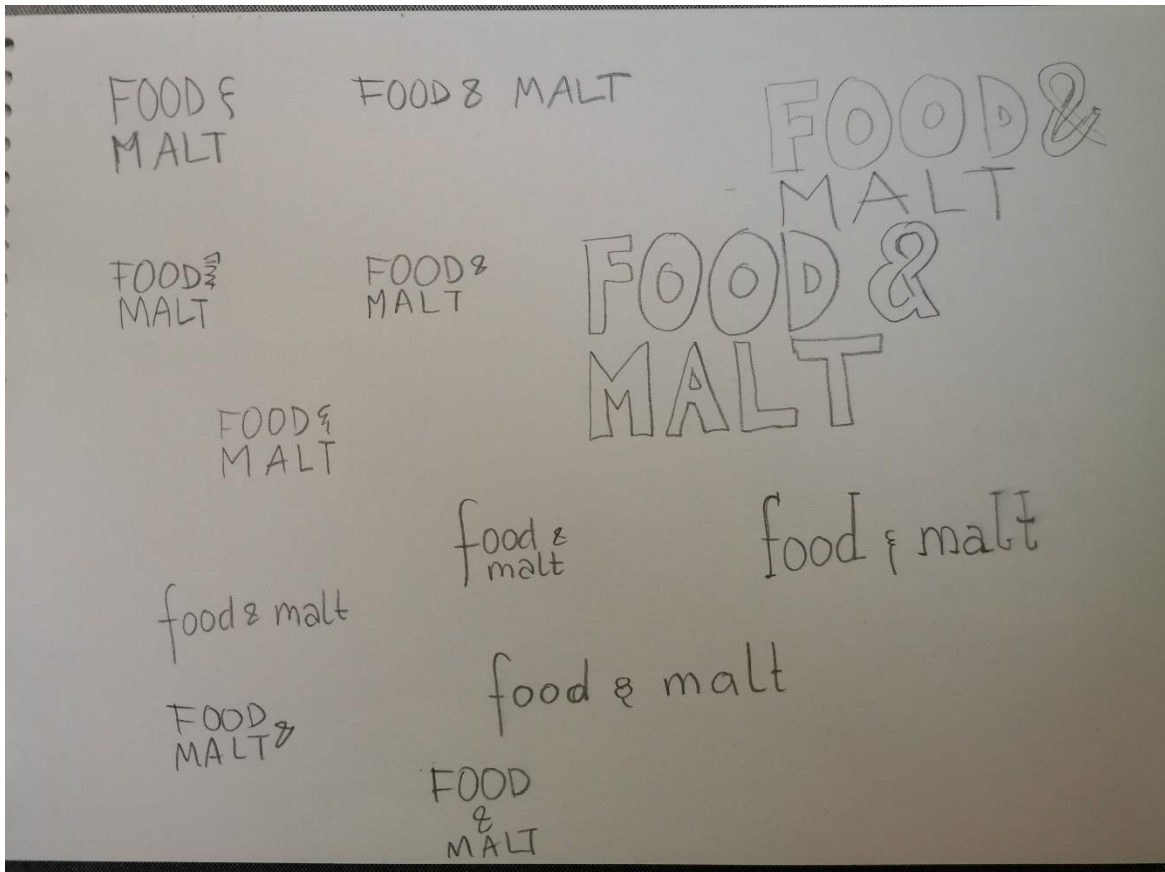 FOOD &
MALT
FOOD & MALT
FOOD &
MALT
FOOD &
MALT
FOOD &
MALT
FOOD &
MALT
FOOD &
MALT
food &
malt
food & malt
food & malt
food & malt
FOOD &
MALT
FOOD
&
MALT